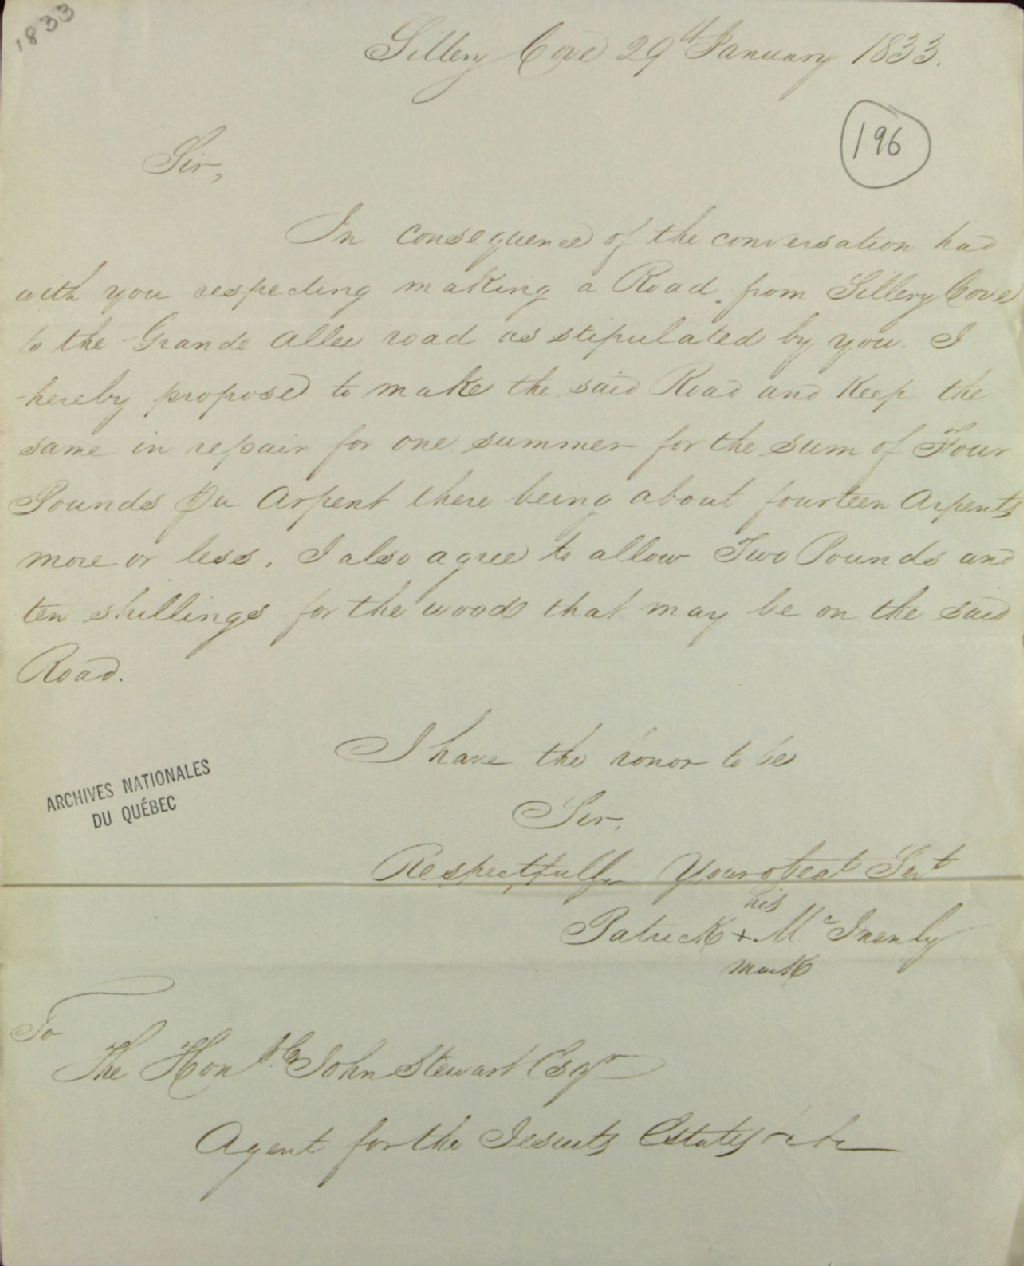 1833
Sillery Cove 29th January 1833.
196
Sir,
In consequence of the conversation had
with you respecting making a Road from Sillery Cove
to the Grande Allee road as stipulated by you. I
hereby propose to make the said Road and Keep the
same in repair for one summer for the sum of Four
Pounds Per Arpent there being about fourteen Arpents
more or less. I also agree to allow Two Pounds and
ten shillings for the wood that may be on the said
Road.
I have the honor to be
Sir,
Respectfully Your obedt Servt
his
Patrick + Mc
mark
ARCHIVES NATIONALES
DU QUÉBEC
To
The Honble John Stewart Esqr
Agent for the Jesuits Estates &c &c